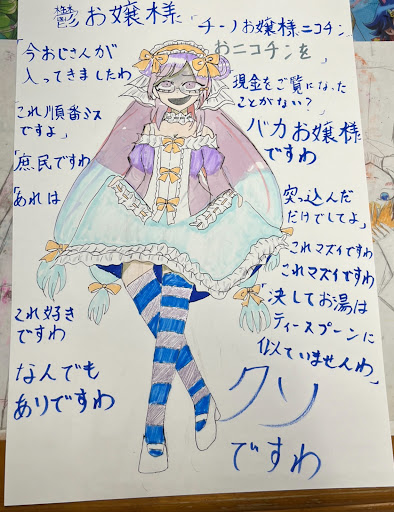 鬱お嬢様
「チー」お嬢様ニコチン
おニコチンを
「今おじさんが
入ってきましたわ
これ順番ミス
ですよ」
「庶民ですわ
「あれは
これ好き
ですわ
なんでも
ありですわ
現金をご覧になった
ことがない?
バカお嬢様
ですわ
突っ込んだ
だけでしてよ」
これマズイですわ
これマズイですわ
「決してお湯は
ティースプーンに
似ていませんわ」
クソ
ですわ